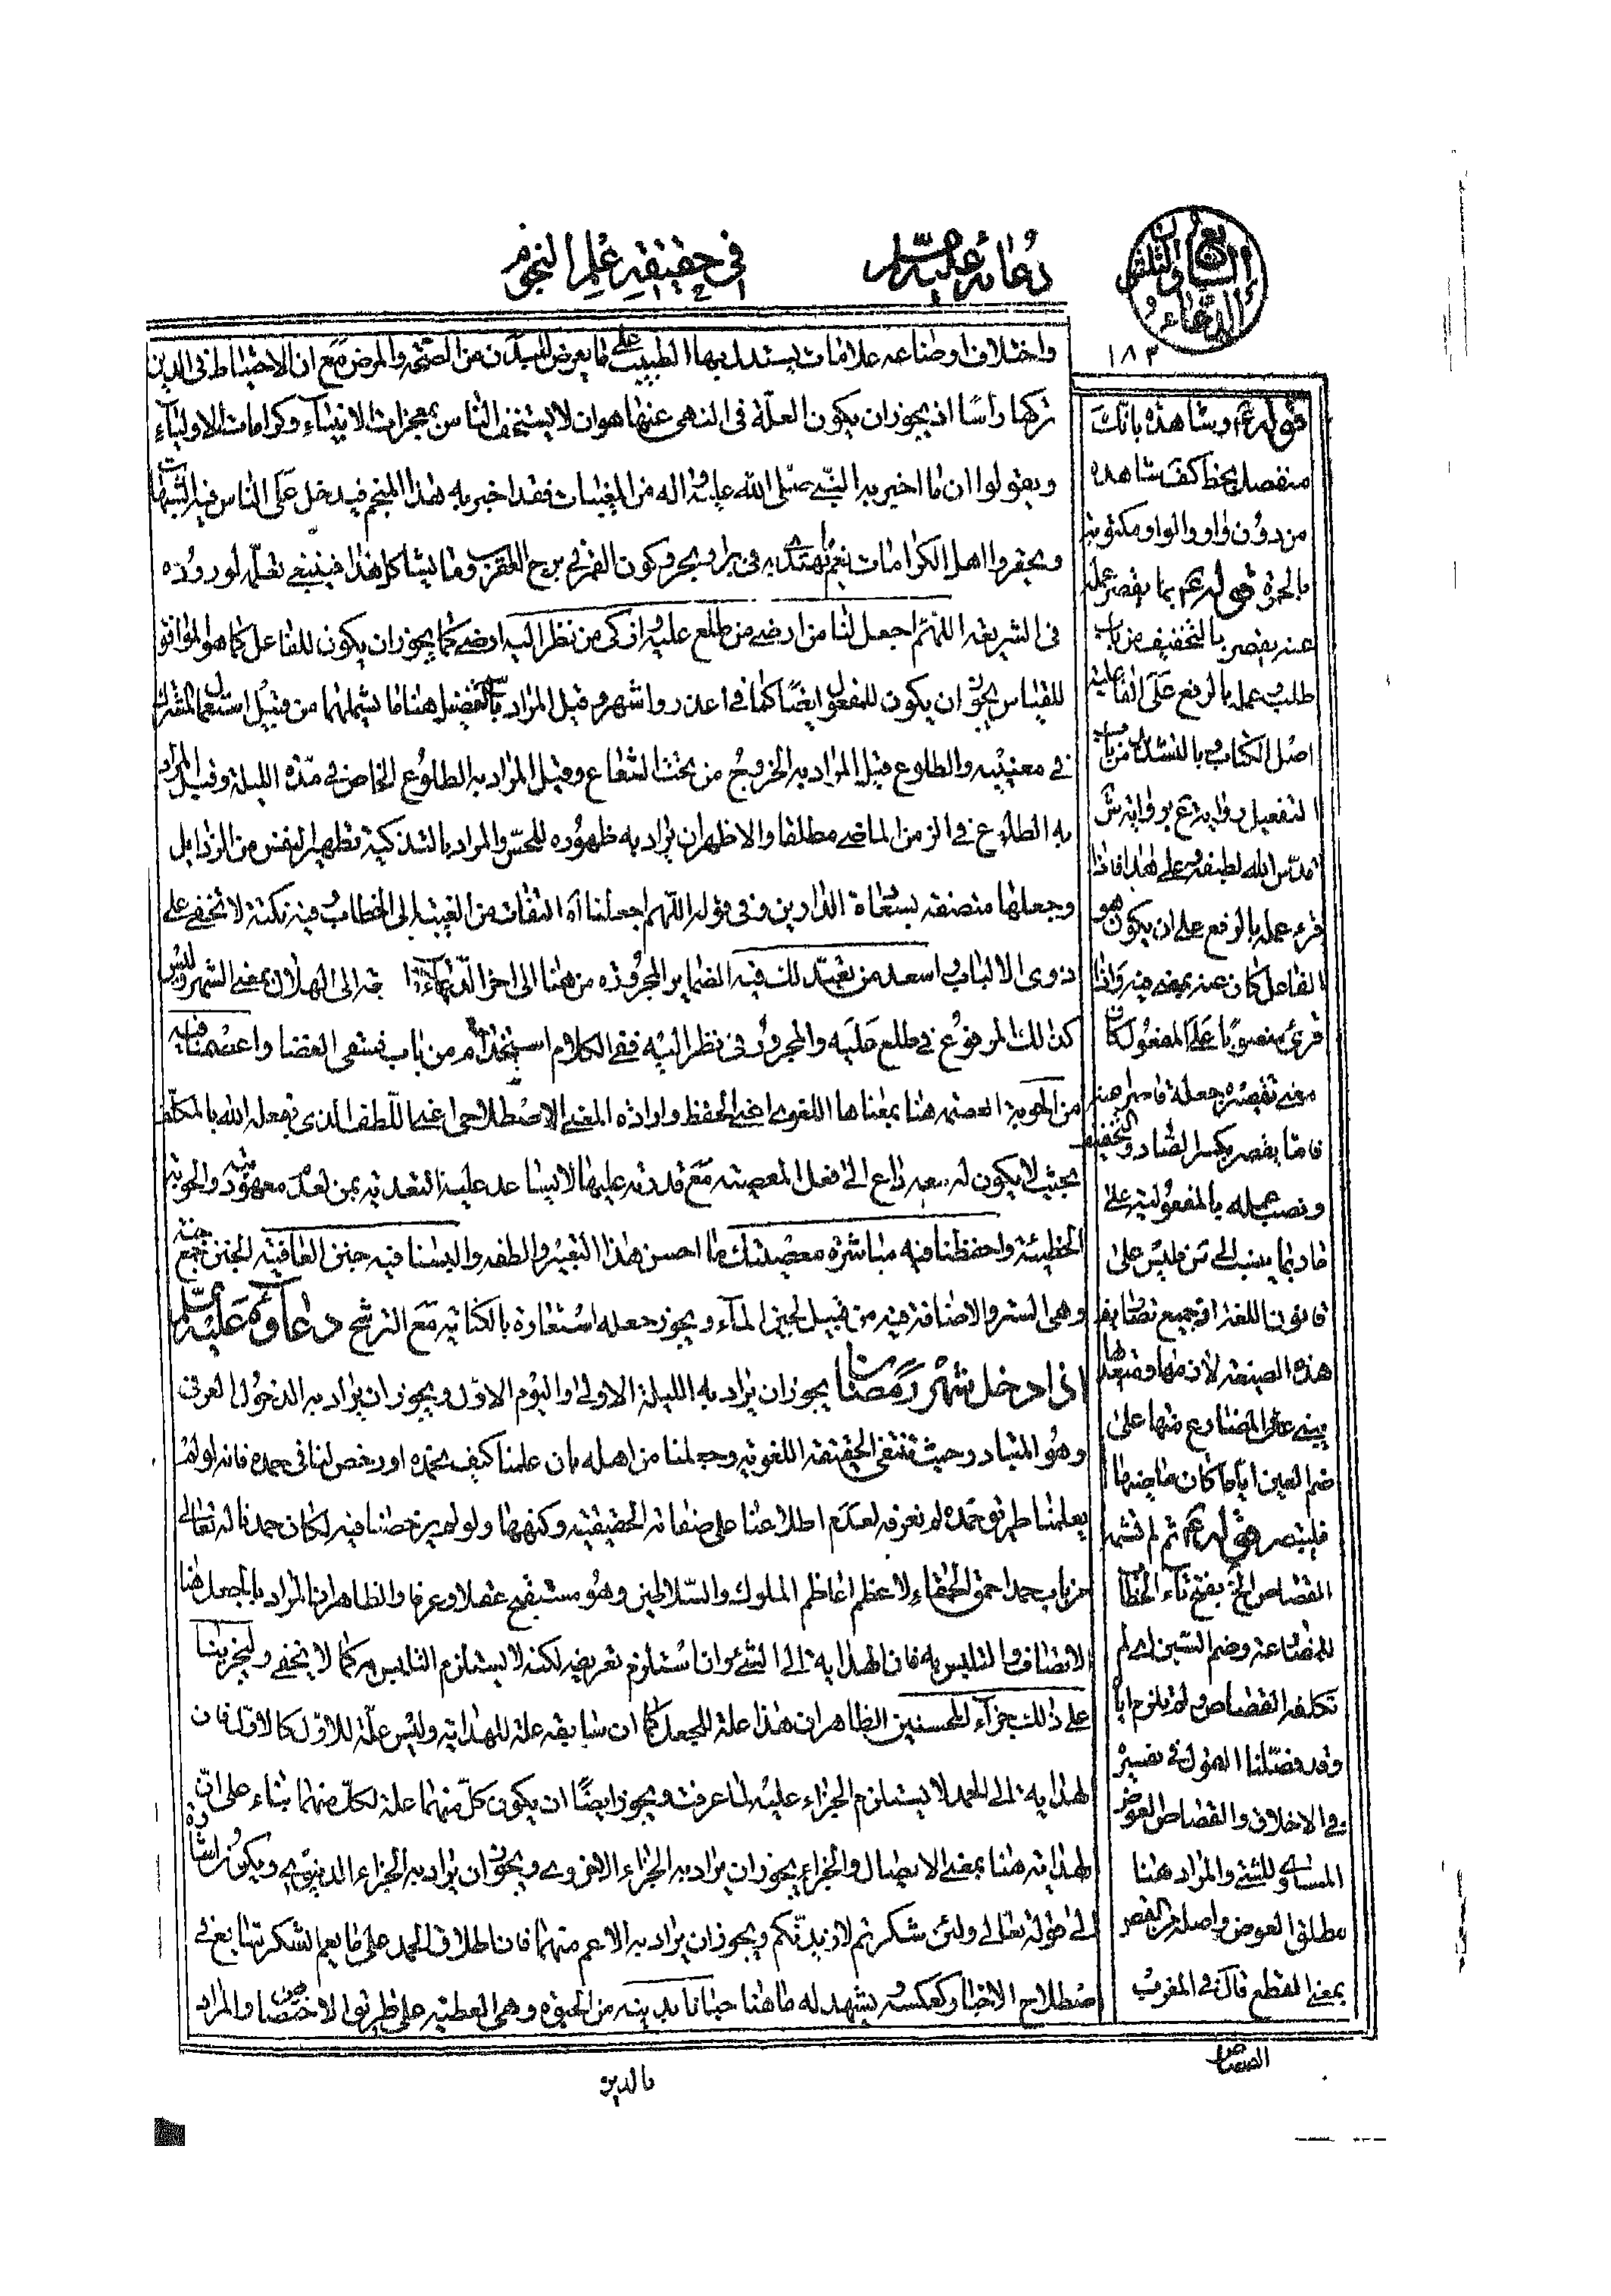 دعائه عليه السلم
في حقيقة علم النجوم
١٨٣
واختلاف اوضاعه علامات يستدل بها الطبيب على ما يعرض للبدن من الصحة والمرض مع ان الاحتياط في الدين
تركها راسًا اذ يجوز ان يكون العلة في النهى عنها هو ان لا يستخف الناس بمعجزات الانبياء وكرامات الاولياء
ويقولوا ان ما اخبر به النبي صلى الله عليه واله من المغيبات فقد اخبر به هذا المنجم فيدخل على الناس فيه الشبهات
ويحقروا اهل الكرامات نعم ما يهتدى به في بر او بحر وكون القمر في برج العقرب وما يشاكل هذا فينبغي تعلمه لوروده
في الشريعة اللهم اجعلنا من ارضى من طلع عليه وازكى من نظر اليه ارضى كما يجوز ان يكون للفاعل كما هو الموافق
للقياس يجوز ان يكون للمفعول ايضًا كما في اعذر واشهر وقيل المراد بالتفضيل هنا ما يشملهما من قبيل استعمال المشترك
في معنييه والطلوع قيل المراد به الخروج من تحت الشعاع وقيل المراد به الطلوع الخاص في هذه الليلة وقيل المراد
به الطلوع في الزمن الماضي مطلقا والاظهر ان يراد به ظهوره للحس والمراد بالتذكية تطهير النفس من الرذايل
وجعلها متصفة بسعادة الدارين وفي قوله اللهم اجعلنا اه التفات من الغيبة الى الخطاب وفيه نكتة لا تخفى على
ذوي الالباب واسعد من تعبد لك فيه الضماير المجرورة من هنا الى اخر الدعاء راجعة الى الهلال بمعنى الشهر وليس
كذلك المرفوع في طلع عليه والمجرور في نظر اليه ففي الكلام استخدام من باب فسقى الغضا واعصمنا فيه
من الحوبة العصمة هنا بمعناها اللغوي اعني الحفظ وارادة المعنى الاصطلاحي اعني اللطف الذي يفعله الله بالمكلف
بحيث لا يكون له معه داع الى فعل المعصية مع قدرته عليها لا يساعد عليه التعدية بمن لعدم معهوديته والحوبة
الخطيئة واحفظنا فيه مباشرة معصيتك ما احسن هذا التعبير والطفه والبسنا فيه جنن العافية الجنن جمع جنة
وهي الستر والاضافة فيه من قبيل لجين الماء ويجوز جعله استعارة بالكناية مع الترشيح دعاؤه عليه السلم
اذا دخل شهر رمضان يجوز ان يراد به الليلة الاولى او اليوم الاول ويجوز ان يراد به الدخول العرفي
وهو المتبادر وحيث تنتفي الحقيقة اللغوية وجعلنا من اهله بان علمنا كيف نحمده او رخص لنا في حمده فانه لو لم
يعلمنا طريق حمده لم نعرفه لعدم اطلاعنا على صفاته الحقيقية وكنهها ولو لم يرخصنا فيه لكان حمدنا له تعالى
من باب حمد احمق الحمقاء لاعظم اعاظم الملوك والسلاطين وهو مستقبح عقلا وعرفا والظاهر ان المراد بالجعل هنا
الاتصاف والتلبس به فان الهداية الى الشيء وان استلزم تعريضه لكنه لا يستلزم التلبس به كما لا يخفى وليجزينا
على ذلك جزاء المحسنين الظاهر ان هذا علة للجعل كما ان سابقه علة للهداية وليس علة للاول كالاول فان
الهداية الى الحمد لا يستلزم الجزاء عليه لما عرفت ويجوز ايضًا ان يكون كل منهما علة لكل منهما بناء على ان
الهداية هنا بمعنى الايصال والجزاء يجوز ان يراد به الجزاء الاخروي ويجوز ان يراد به الجزاء الدنيوي ويكون اشارة
الى قوله تعالى ولئن شكرتم لازيدنكم ويجوز ان يراد به الاعم منهما فان اطلاق الحمد على ما يعم الشكر شايع في
اصطلاح الاخبار كعكسه ويشهد له ما هنا حبانا بدينه من الحبوة وهي العطية على طريق الاختصاص والمراد
بالدين
قوله ع وشاهده بانك
منفصل بخط كف شاهده
من دون واو والواو مكتوبة
بالحمرة قوله ع بما يقصر عمله
عنه يقصر بالتخفيف من باب
طلب وعمله بالرفع على الفاعلية
اصل الكتاب وبالتشديد من باب
التفعيل رواية ع بو رواية ش
قدس الله لطيفه وعلى هذا فاذا
قرء عمله بالرفع على ان يكون هو
الفاعل كان عنه بمعنى فيه واذا
قرئ منصوبا على المفعول كان
معنى تقصيره جعله قاصرا عنه
فاما يقصر بكسر الصاد والتخفيف
ونصب عمله بالمفعولية على
ما ربما ينسب الى ش فليس على
قانون اللغة اذ جميع تصاريف
هذه الصيغة لازمها ومتعديها
يبنى على المضارع منها على
ضم العين ايا ما كان ماضيها
فليتبصر قوله ع ثم لم تسمه
القصاص الخ بفتح تاء الخطاب
للمضارعة وضم السين اى لم
تكلفه القصاص ولم تلزم اياه
وقد فصلنا القول في تفسيره
في الاخلاق والقصاص العوض
المساوي للشيء والمراد هنا
مطلق العوض واصله من القص
بمعنى القطع قال في المغرب
القصاص